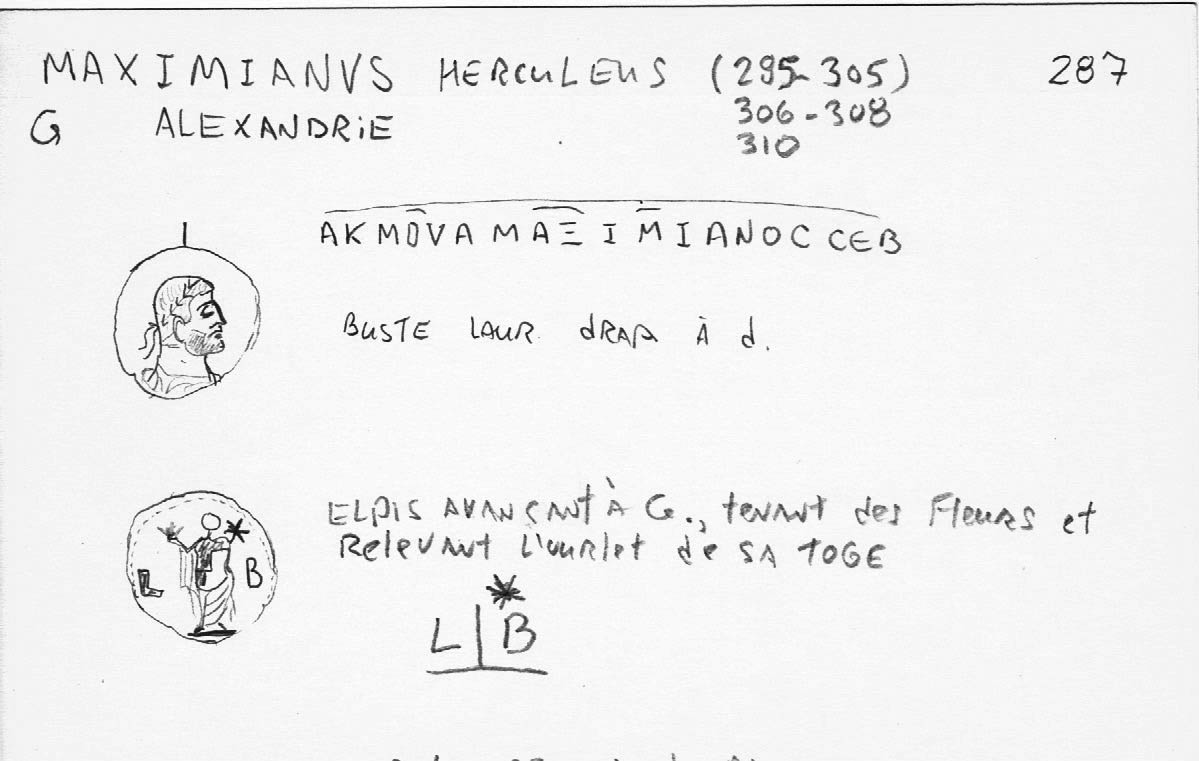 MAXIMIANVS HERCULEUS (295-305) 287
306-308
G ALEXANDRIE
310
AKMOVAMAΞIMIANOC CEB
BUSTE LAUR. dRAP À d.
L B
ELPIS AVANÇANT À G., tenant des Fleurs et
Relevant l'ourlet de SA TOGE
L | B